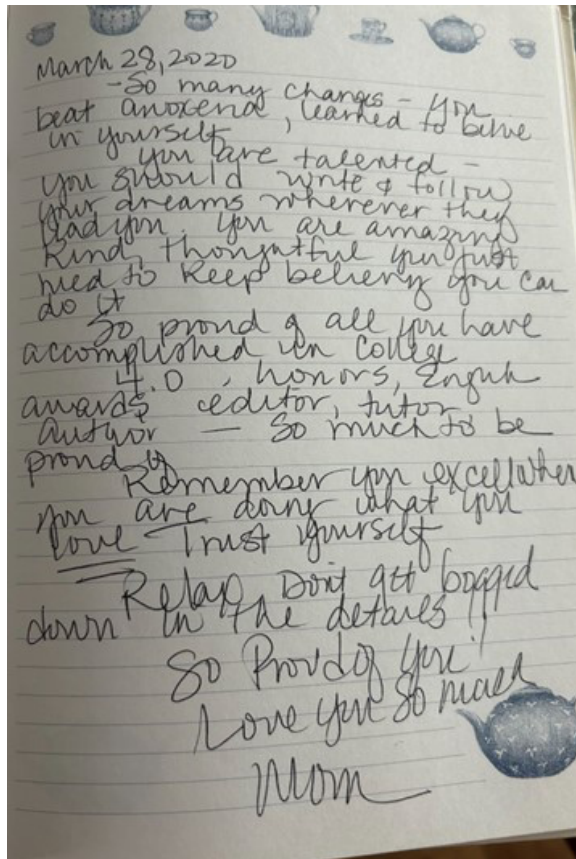 March 28, 2020
- So many changes - you
beat anorexia, learned to belive
in yourself
You are talented -
you should write & follow
your dreams wherever they
lead you. You are amazing
kind, thoughtful you just
need to keep believing you can
do it
So proud of all you have
accomplished in College
4.0, honors, English
awards editor, tutor
author — So much to be
proud of
Remember you excell when
you are doing what you
love Trust yourself
Relax, Don't get bogged
down in the detailes!!
So Proud of You!
Love you so much
Mom